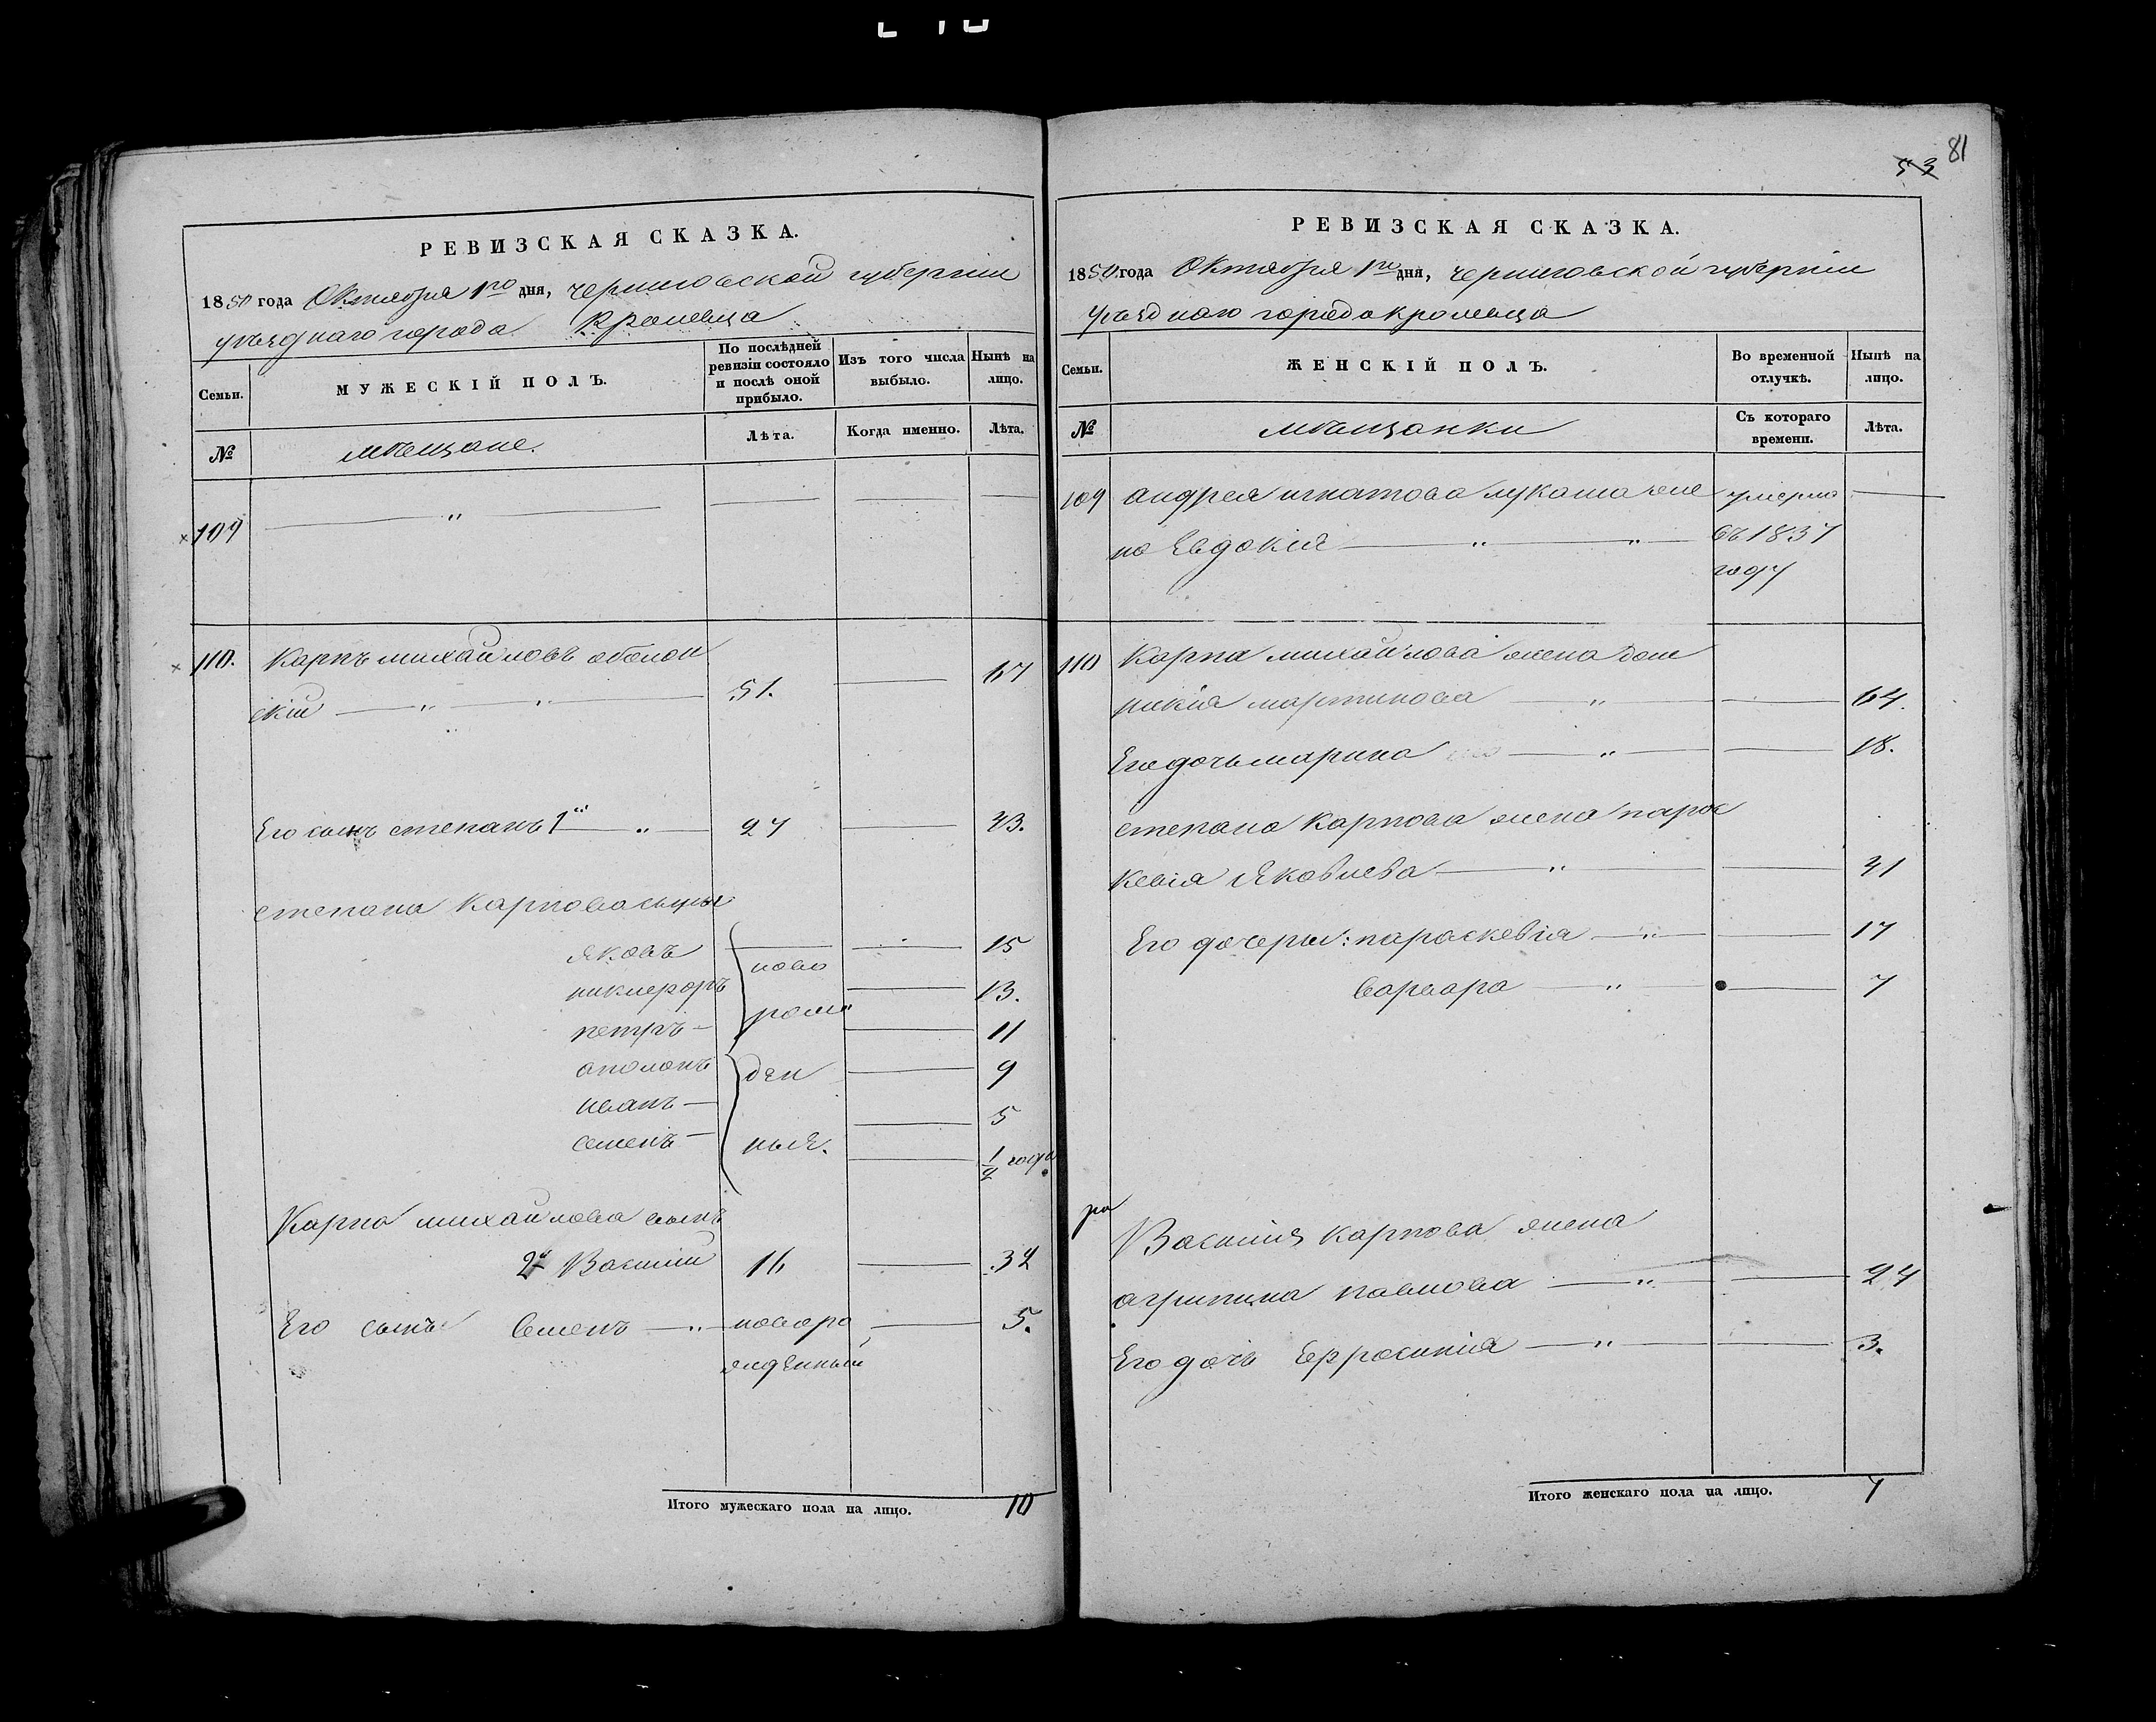 81
53
РЕВИЗСКАЯ СКАЗКА.
1850 года Октября 1го дня, Черниговской губернии
уѣзднаго города Кролевца
Семьи.
МУЖЕСКІЙ ПОЛЪ.
По послѣдней ревизіи состояло и послѣ оной прибыло.
Изъ того числа выбыло.
Нынѣ на лицо.
№
мѣщане.
Лѣта.
Когда именно.
Лѣта.
109 — " —
110. Карпъ михайловъ оболон
скій — " — " — 51. — 67
Его сынъ степанъ 1й — " — 27 — 43.
степана Карпова сыны
яковъ — — 15
ново
никифоръ — 13.
рож
петръ — — 11
аполонъ ден — 9
иванъ — — 5
семенъ — ные. — 1/2 года
Карпа михайлова сынъ
2й Василий 16 — 32
Его сынъ Семенъ — " — новоро — 5.
жденный
Итого мужескаго пола на лицо. 10
РЕВИЗСКАЯ СКАЗКА.
1850 года Октября 1го дня, Черниговской губернии
уѣзднаго города кролевца
Семьи.
ЖЕНСКІЙ ПОЛЪ.
Во временной отлучкѣ.
Нынѣ на лицо.
№
мѣщанки
Съ котораго времени.
Лѣта.
109 андрея игнатова лукаша же умерла —
на Евдокія — " — " — въ 1837
году
110 Карпа михайлова жена дом
никія мартинова — " — — 64.
Его дочь марина — " — — 18.
степана Карпова жена парас
кевія яковлева — " — — 41
Его дочеры: параскевія — " — — 17
варвара — " — — 7
ра
Василия карпова жена
агрипина павлова — " — — 24
Его дочь Ефросинія — " — — 3.
Итого женскаго пола на лицо. 7